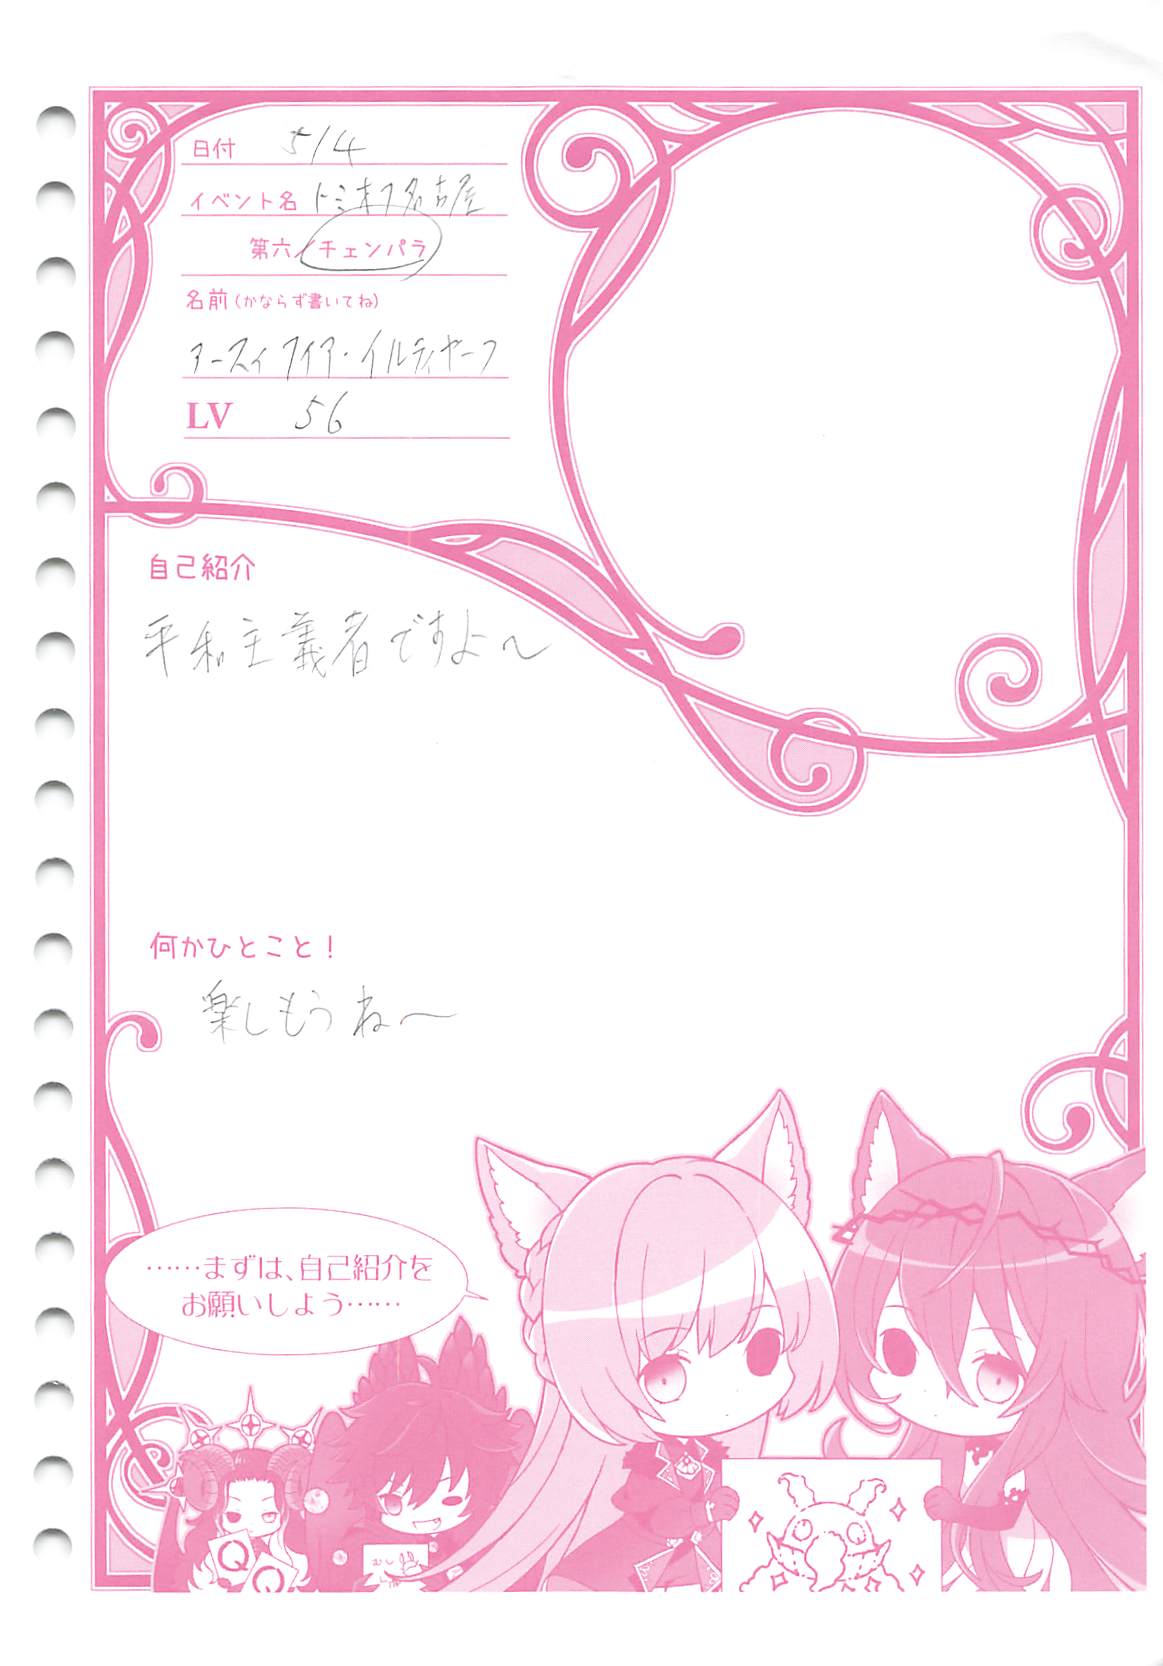 日付 5/4
イベント名 トミオフ名古屋
第六/チェンパラ
名前(かならず書いてね)
アースィファ・イルティヤーフ
LV 56
自己紹介
平和主義者ですよ〜
何かひとこと!
楽しもうね〜
……まずは、自己紹介を
お願いしよう……
Q
Q